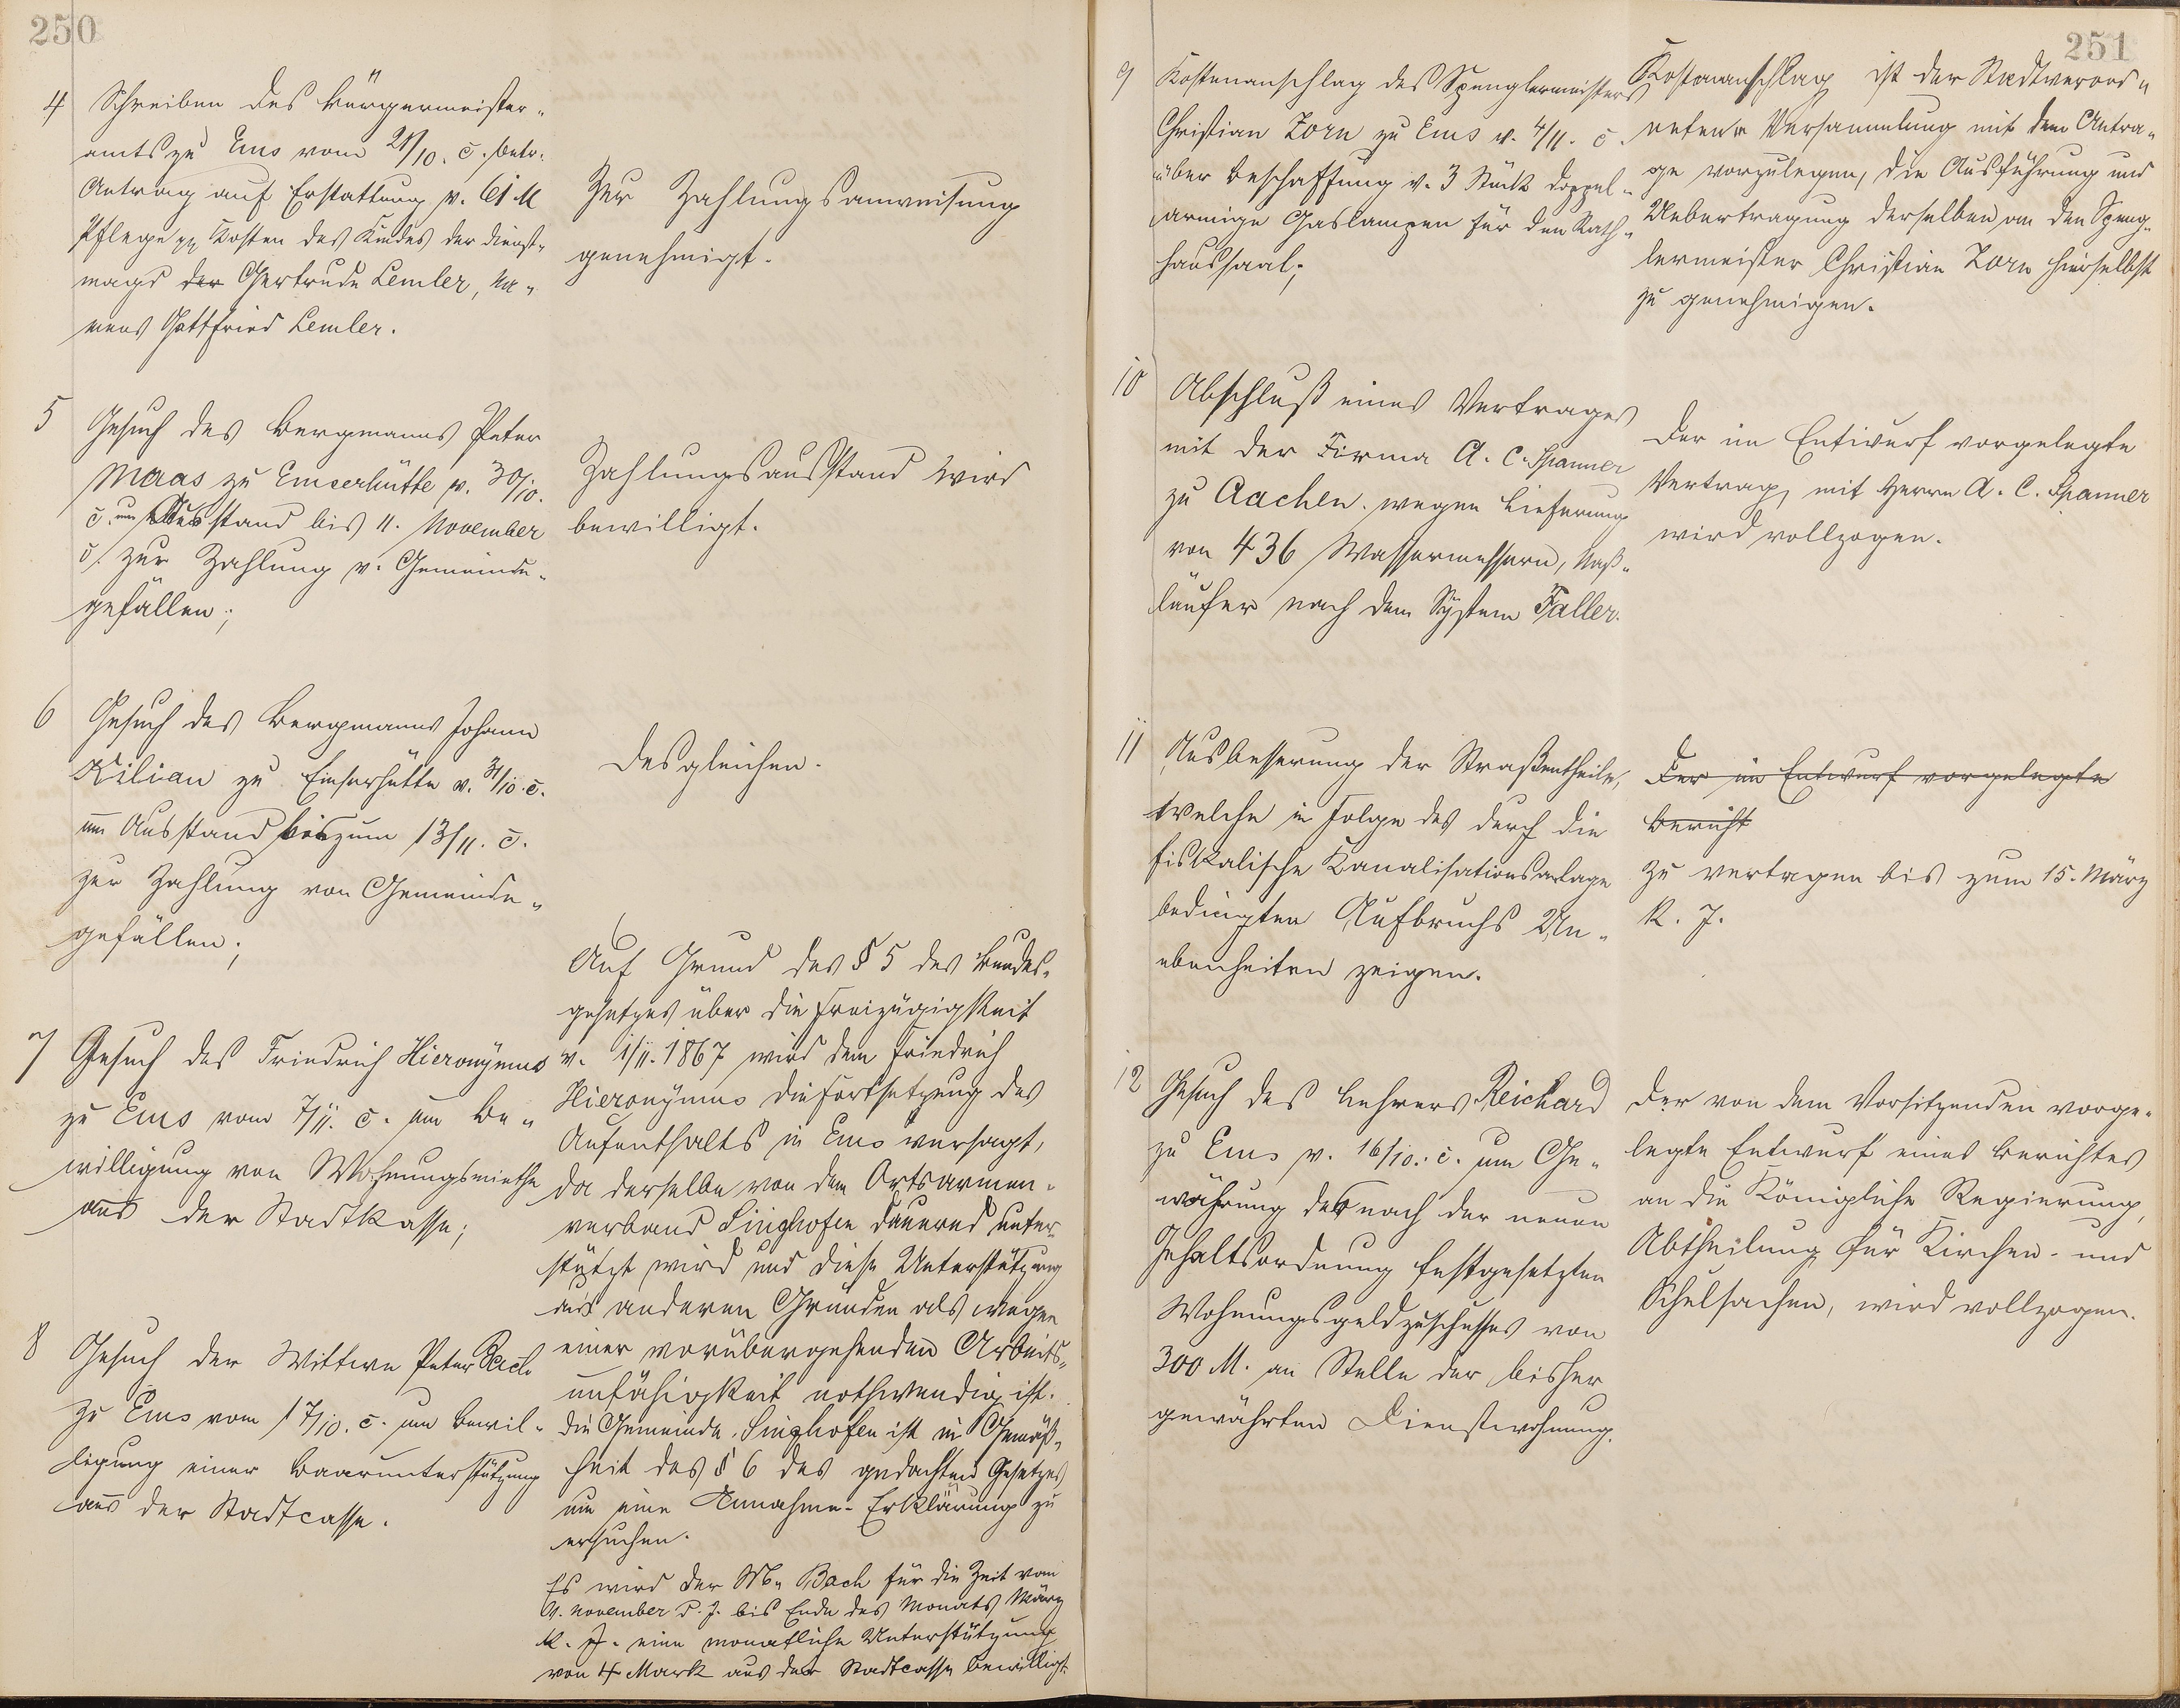 250
4 Schreiben des Bürgermeister„
amts zu Ems vom 21/10. c. betr.
Antrag auf Erstattung v. 61 M
Pflege pp Kosten des Kindes der Dienst„
magd der Gertrude Lemler, Na„
mens Gottfried Lemler.
Zur Zahlungsanweisung
genehmigt.
5 Gesuch des Bergmanns Peter
Maas zu Emserhütte v. 30/10.
c. um Ausstand bis 11. November
c. zur Zahlung v. Gemeinde„
gefällen;
Zahlungsausstand wird
bewilligt.
6 Gesuch des Bergmanns Johann
Kilian zu Emserhütte v. 31/10. c.
um Ausstand bis zum 13/11. c.
zur Zahlung von Gemeinde„
gefällen;
Desgleichen.
7 Gesuch des Friedrich Hieronymus
zu Ems vom 7/11. c. um Be„
willigung von Wohnungsmiethe
aus der Stadtkasse;
Auf Grund des § 5 des Bundes„
gesetzes über die Freizügigkeit
v. 1/11. 1867 wird dem Friedrich
Hieronymus die Fortsetzung des
Aufenthalts in Ems versagt,
da derselbe von dem Ortsarmen„
verband Singhofen dauernd unter„
stützt wird und diese Unterstützung
aus anderen Gründen als wegen
einer vorübergehenden Arbeits„
unfähigkeit nothwendig ist.
Die Gemeinde Singhofen ist in Gemäß„
heit des § 6 des gedachten Gesetzes
um eine Annahme-Erklärung zu
ersuchen.
8 Gesuch der Wittwe Peter Bach
zu Ems vom 17/10. c. um Bewil„
ligung einer Baarunterstützung
aus der Stadtcasse.
Es wird der Bach für die Zeit vom
1. November d. J. bis Ende des Monats März
k. J. eine monatliche Unterstützung
von 4 Mark aus der Stadtcasse bewilligt.
251
9 Kostenanschlag des Spenglermeisters
Christian Zorn zu Ems v. 4/11. c.
über Beschaffung v. 3 Stück doppel„
armige Gaslampen für den Rath„
haussaal;
Kostenanschlag ist der Stadtverord„
neten Versammlung mit dem Antra„
ge vorzulegen, die Ausführung und
Uebertragung derselben an den Speng„
lermeister Christian Zorn hierselbst
zu genehmigen.
10 Abschluß eines Vertrages
mit der Firma A. C. Spanner
zu Aachen wegen Lieferung
von 436 Wassermessern, Naß„
läufer nach dem System Faller.
Der im Entwurf vorgelegte
Vertrag mit Herrn A. C. Spanner
wird vollzogen.
11 Ausbesserung der Straßentheile,
welche in Folge des durch die
fiskalische Kanalisationsanlage
bedingten Aufbruchs Un„
ebenheiten zeigen.
Der im Entwurf vorgelegte
Bericht
Zu vertagen bis zum 15. März
k. J.
12 Gesuch des Lehrers Reichard
zu Ems v. 16/10. c. um Ge„
währung des nach der neuen
Gehaltsordnung festgesetzten
Wohnungsgeldzuschusses von
300 M. an Stelle der bisher
gewährten Dienstwohnung.
Der von dem Vorsitzenden vorge„
legte Entwurf eines Berichtes
an die Königliche Regierung,
Abtheilung für Kirchen- und
Schulsachen, wird vollzogen.